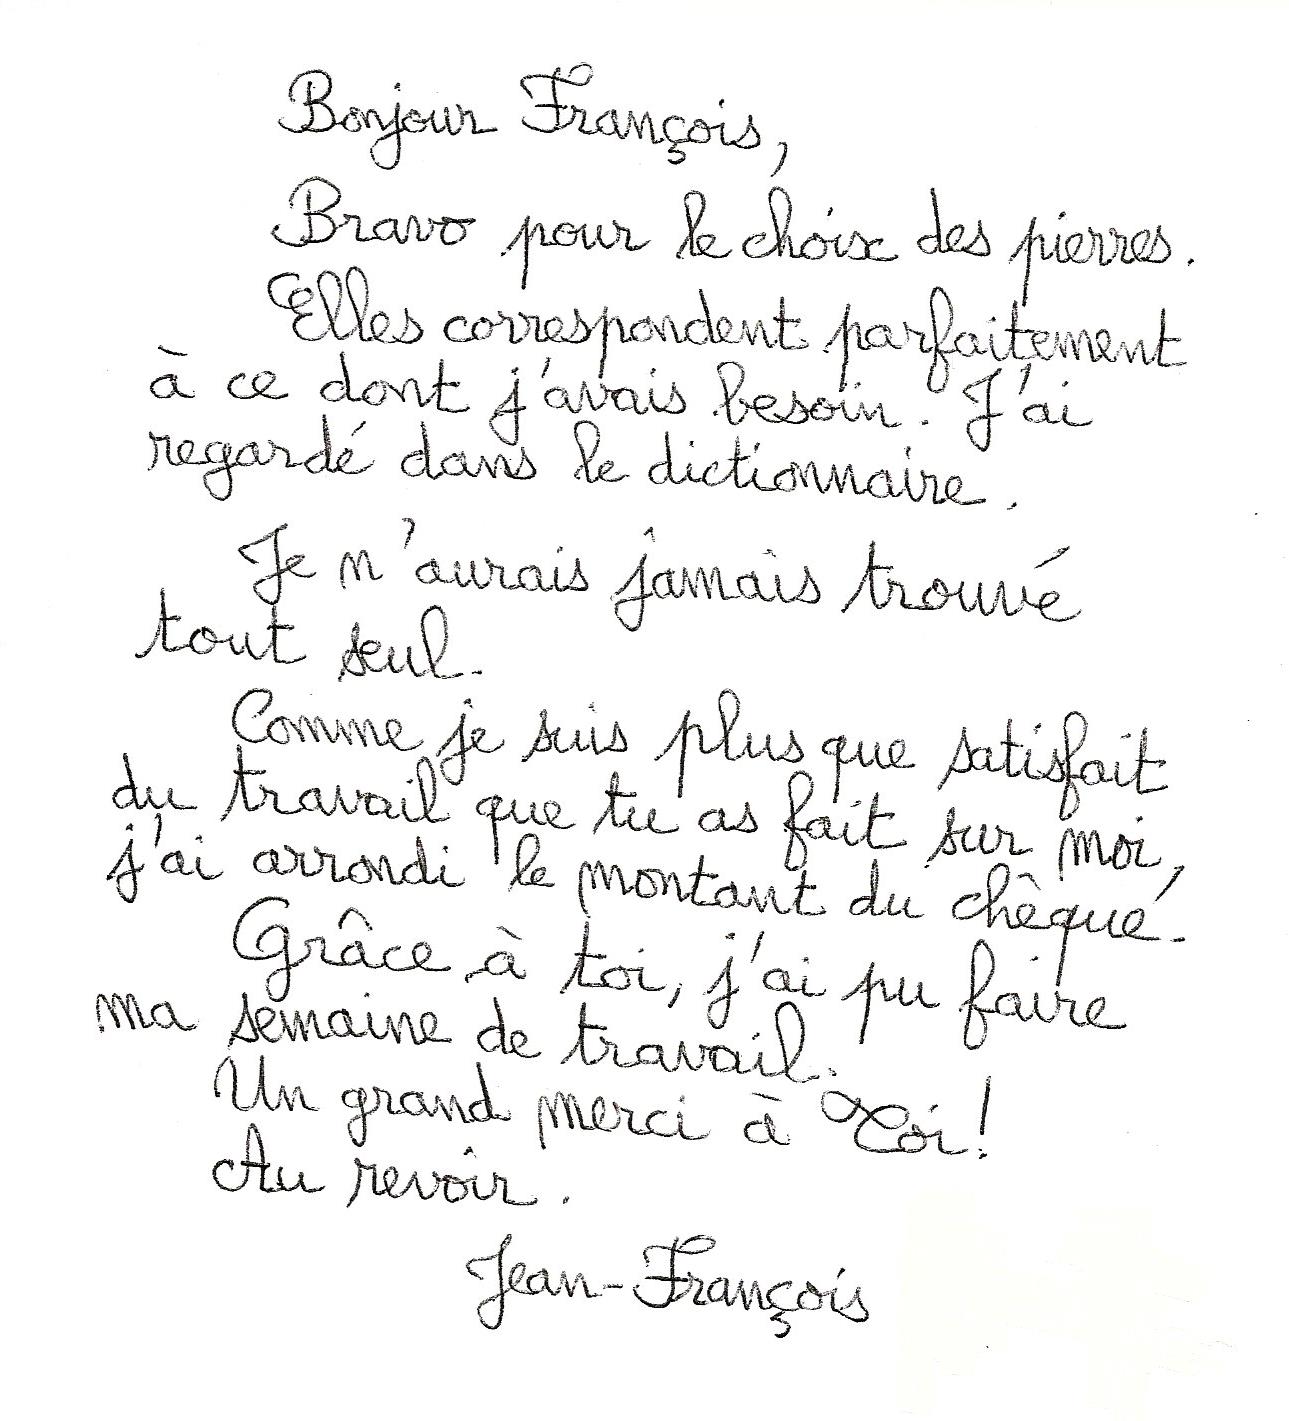 Bonjour François,
Bravo pour le choix des pierres.
Elles correspondent parfaitement
à ce dont j'avais besoin. J'ai
regardé dans le dictionnaire.
Je n'aurais jamais trouvé
tout seul.
Comme je suis plus que satisfait
du travail que tu as fait sur moi,
j'ai arrondi le montant du chèque.
Grâce à toi, j'ai pu faire
ma semaine de travail.
Un grand merci à Toi!
Au revoir.
Jean-François